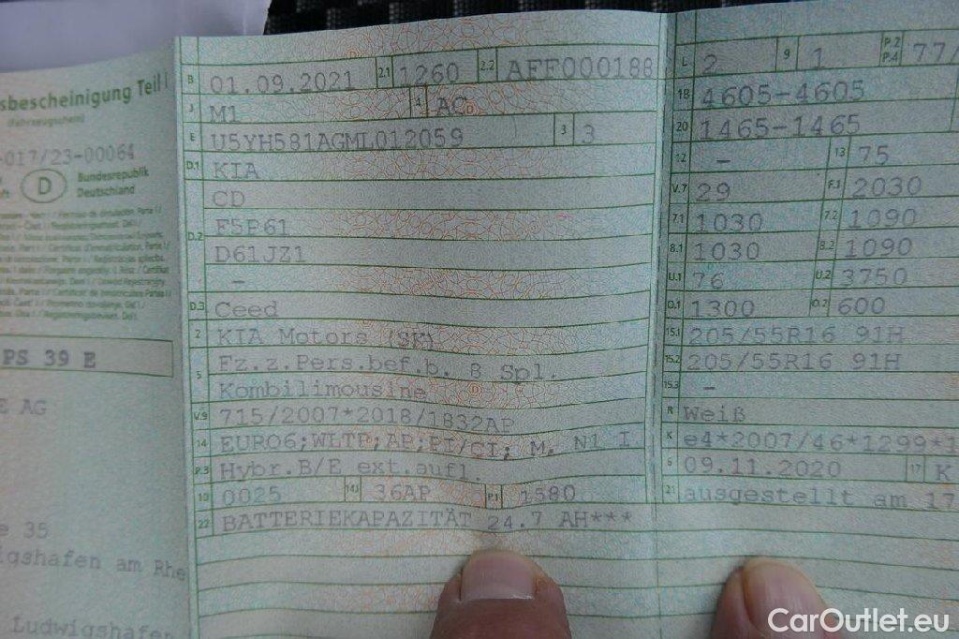 sbescheinigung Teil I
(Fahrzeugschein)
-017/23-00064
D
Bundesrepublik
Deutschland
PS 39 E
E AG
e 35
igshafen am Rhe
Ludwigshafen
B 01.09.2021 2.1 1260 2.2 AFF000188
J M1 4 AC
E U5YH581AGML012059 3 3
D.1 KIA
CD
D.2 F5P61
D61JZ1
-
D.3 Ceed
2 KIA Motors (SK)
5 Fz.z.Pers.bef.b. 8 Spl.
Kombilimousine
V.9 715/2007*2018/1832AP
14 EURO6;WLTP;AP;PI/CI; M, N1 I
P.3 Hybr.B/E ext.aufl.
10 0025 14.1 36AP P.1 1580
22 BATTERIEKAPAZITÄT 24.7 AH***
L 2 9 1 P.2 P.4 77/
18 4605-4605
20 1465-1465
12 - 13 75
V.7 29 F.1 2030
7.1 1030 7.2 1090
8.1 1030 8.2 1090
U.1 76 U.2 3750
O.1 1300 O.2 600
15.1 205/55R16 91H
15.2 205/55R16 91H
15.3 -
R Weiß
K e4*2007/46*1299*1
6 09.11.2020 17 K
21 ausgestellt am 17
CarOutlet.eu